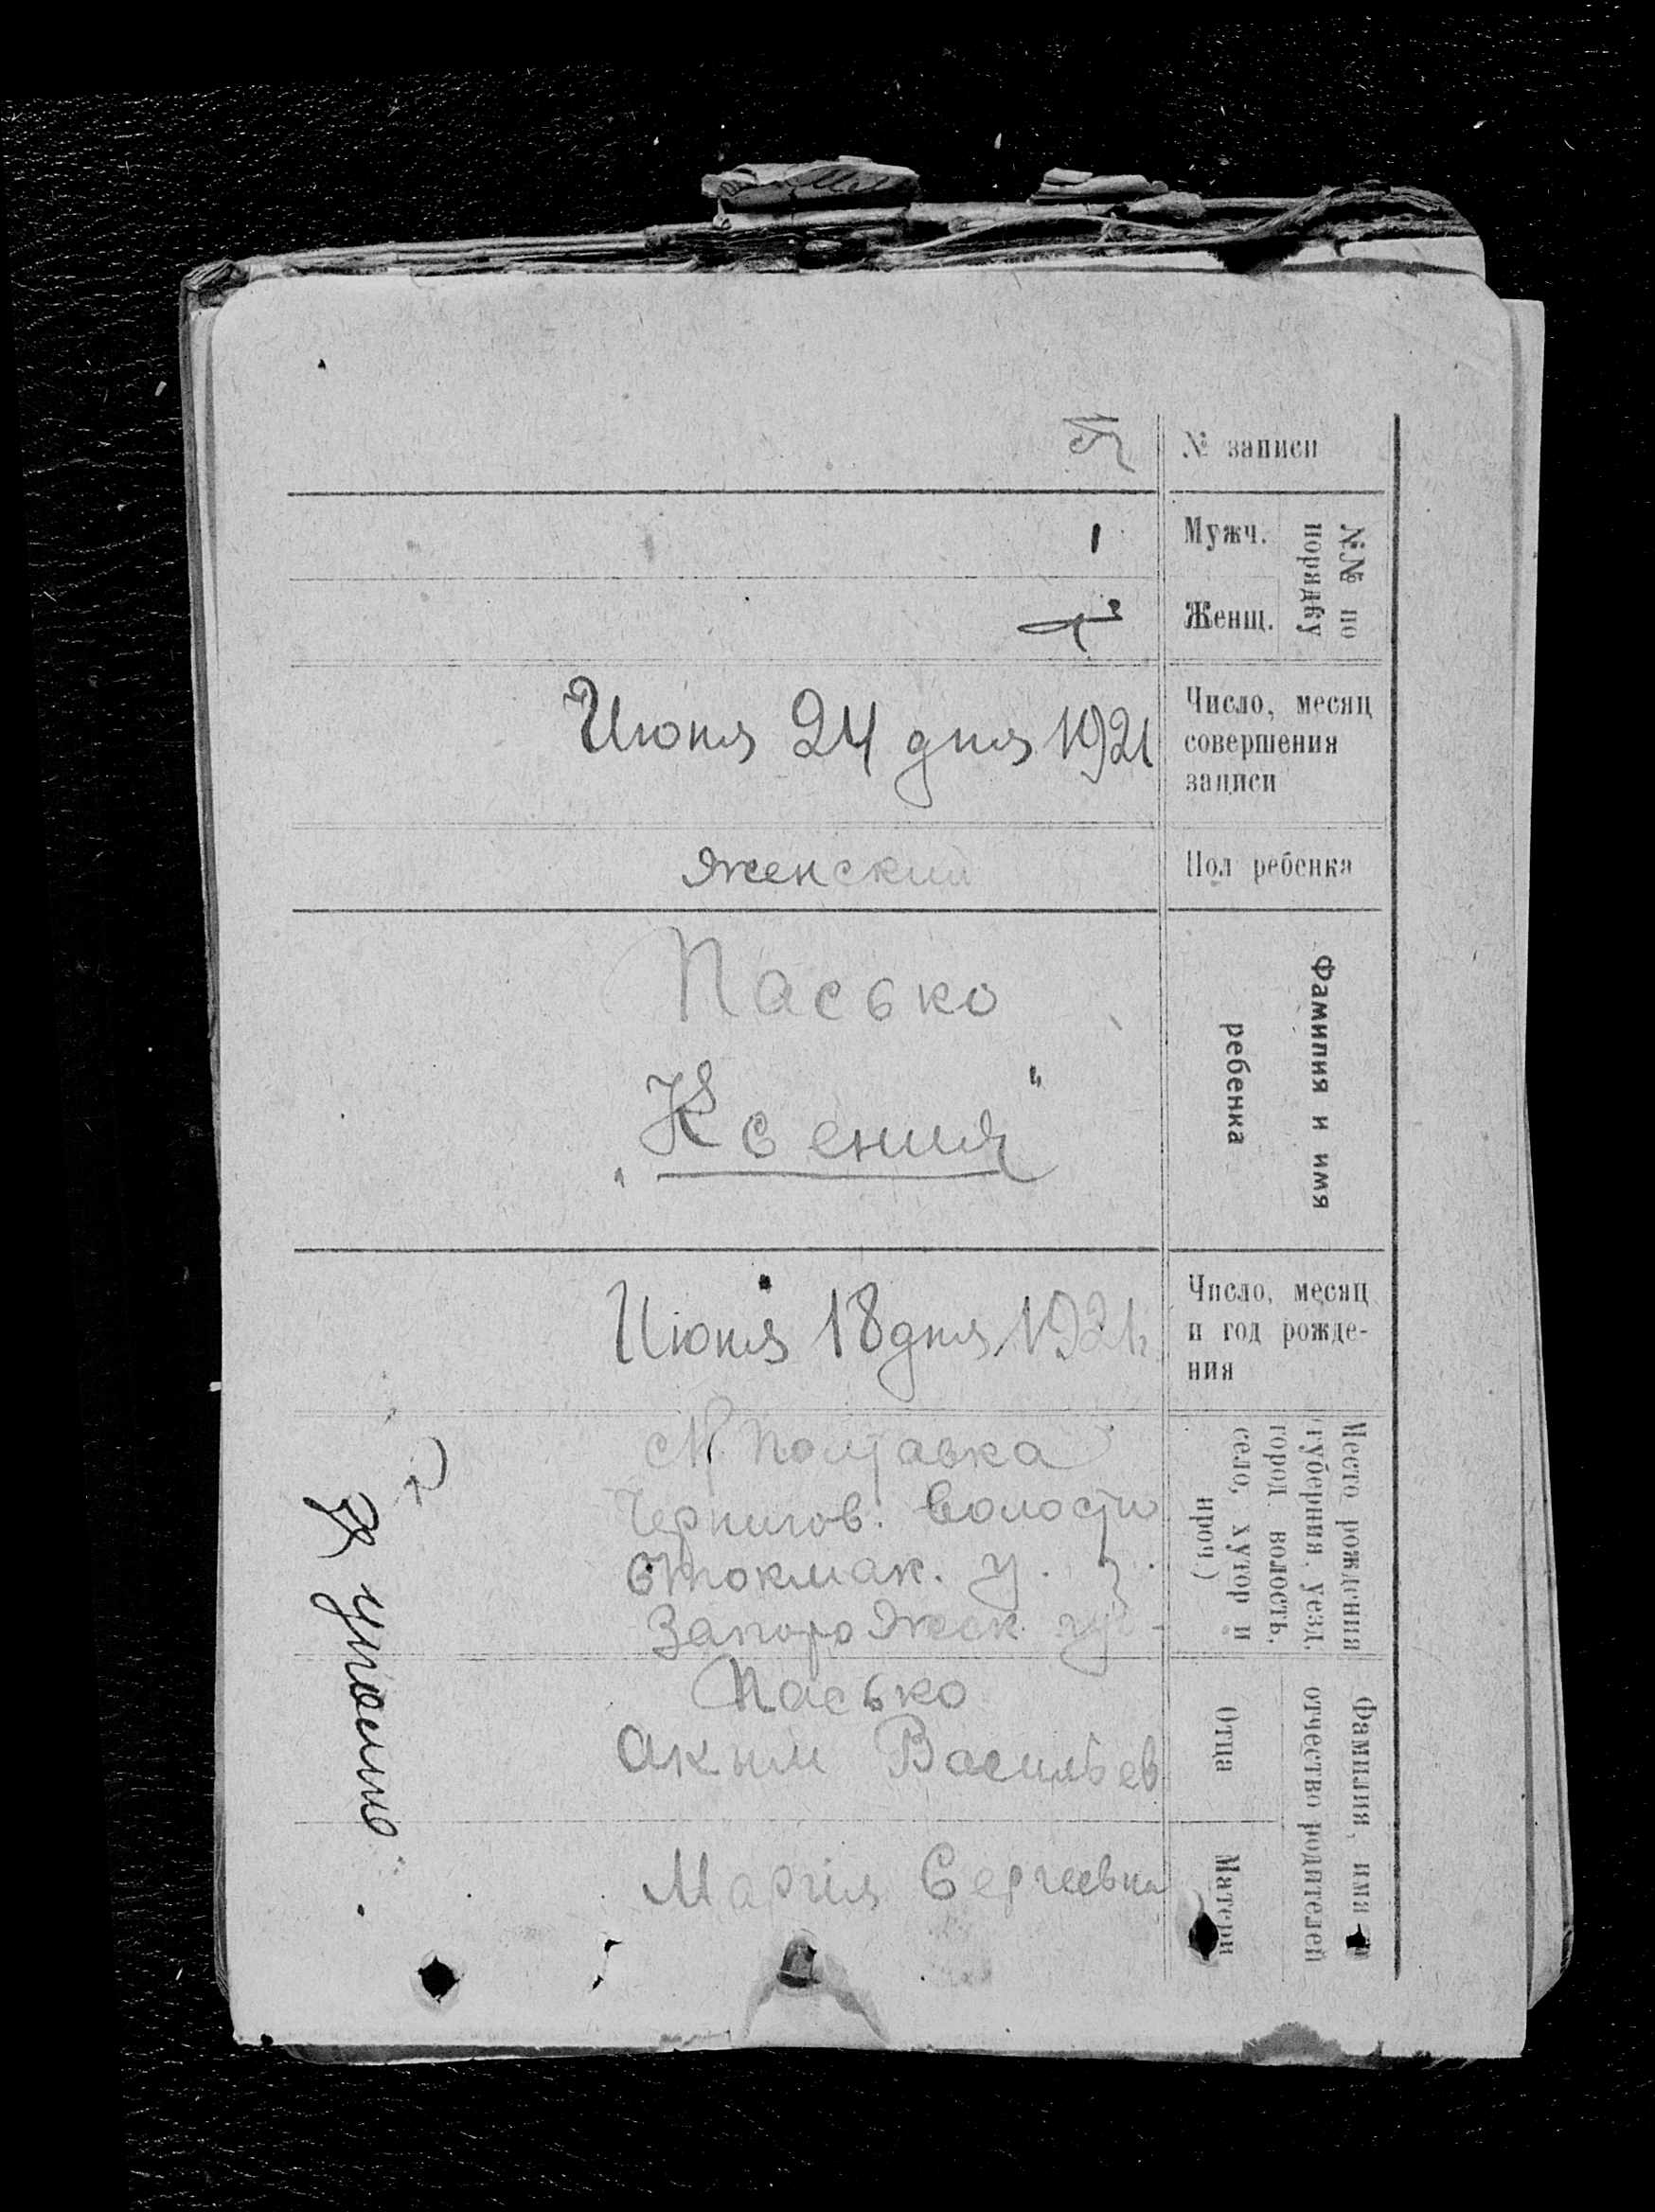 № записи
№№ по
порядку
Мужч.
1
Женщ.
Число, месяц
совершения
записи
Июня 24 дня 1921
Пол ребенка
женский
Фамилия и имя
ребенка
Пасько
„Ксения“
Число, месяц
и год рожде-
ния
Июня 18 дня 1921
Место рождения
(губерния, уезд,
город, волость,
село, хутор и
проч.)
Полтавка
Чернигов. Волости
Токмак. у.
Запорожск. гу
Фамилия, имя и
отчество родителей
Отца
Пасько
Аким Васильев
Матери
Мария Сергеевна